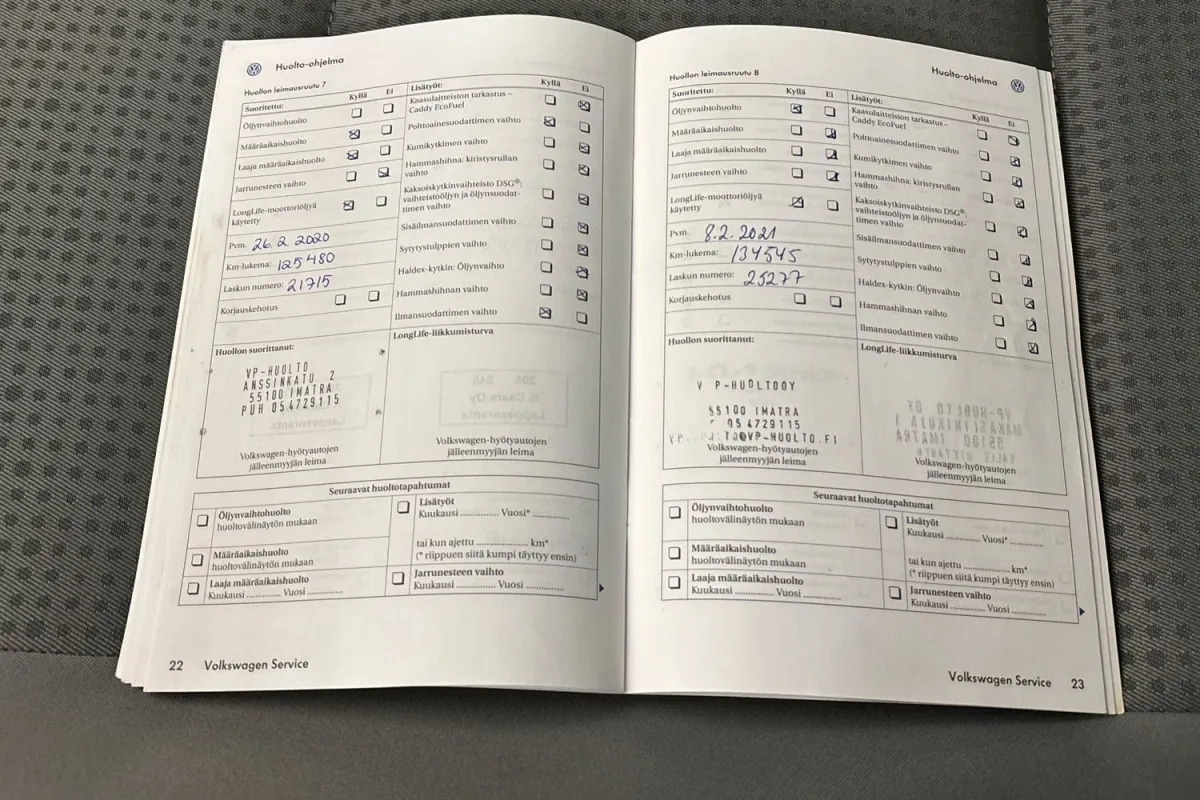 Huolto-ohjelma
Huollon leimausruutu 7
Suoritettu:
Kyllä
Ei
Öljynvaihtohuolto
Määräaikaishuolto
Laaja määräaikaishuolto
Jarrunesteen vaihto
LongLife-moottoriöljyä
käytetty
Pvm. 26.2.2020
Km-lukema: 125480
Laskun numero: 21715
Korjauskehotus
Lisätyöt:
Kyllä
Ei
Kaasulaitteiston tarkastus –
Caddy EcoFuel
Polttoainesuodattimen vaihto
Kumikytkimen vaihto
Hammashihna: kiristysrullan
vaihto
Kaksoiskytkinvaihteisto DSG®:
vaihteistoöljyn ja öljynsuodat-
timen vaihto
Sisäilmansuodattimen vaihto
Sytytystulppien vaihto
Haldex-kytkin: Öljynvaihto
Hammashihnan vaihto
Ilmansuodattimen vaihto
Huollon suorittanut:
VP-HUOLTO
ANSSINKATU 2
55100 IMATRA
PUH 05 4729115
Volkswagen-hyötyautojen
jälleenmyyjän leima
LongLife-liikkumisturva
Volkswagen-hyötyautojen
jälleenmyyjän leima
Seuraavat huoltotapahtumat
Öljynvaihtohuolto
huoltovälinäytön mukaan
Määräaikaishuolto
huoltovälinäytön mukaan
Laaja määräaikaishuolto
Kuukausi .............. Vuosi ..............
Lisätyöt
Kuukausi .............. Vuosi* ..............
tai kun ajettu .................... km*
(* riippuen siitä kumpi täyttyy ensin)
Jarrunesteen vaihto
Kuukausi .............. Vuosi ..............
22 Volkswagen Service
Huollon leimausruutu 8
Huolto-ohjelma
Suoritettu:
Kyllä
Ei
Öljynvaihtohuolto
Määräaikaishuolto
Laaja määräaikaishuolto
Jarrunesteen vaihto
LongLife-moottoriöljyä
käytetty
Pvm. 8.2.2021
Km-lukema: 134545
Laskun numero: 25277
Korjauskehotus
Lisätyöt:
Kyllä
Ei
Kaasulaitteiston tarkastus –
Caddy EcoFuel
Polttoainesuodattimen vaihto
Kumikytkimen vaihto
Hammashihna: kiristysrullan
vaihto
Kaksoiskytkinvaihteisto DSG®:
vaihteistoöljyn ja öljynsuodat-
timen vaihto
Sisäilmansuodattimen vaihto
Sytytystulppien vaihto
Haldex-kytkin: Öljynvaihto
Hammashihnan vaihto
Ilmansuodattimen vaihto
Huollon suorittanut:
V P-HUOLTOOY
55100 IMATRA
05 4729115
@VP-HUOLTO.FI
Volkswagen-hyötyautojen
jälleenmyyjän leima
LongLife-liikkumisturva
Volkswagen-hyötyautojen
jälleenmyyjän leima
Seuraavat huoltotapahtumat
Öljynvaihtohuolto
huoltovälinäytön mukaan
Määräaikaishuolto
huoltovälinäytön mukaan
Laaja määräaikaishuolto
Kuukausi .............. Vuosi ..............
Lisätyöt
Kuukausi .............. Vuosi* ..............
tai kun ajettu .................... km*
(* riippuen siitä kumpi täyttyy ensin)
Jarrunesteen vaihto
Kuukausi .............. Vuosi ..............
Volkswagen Service 23